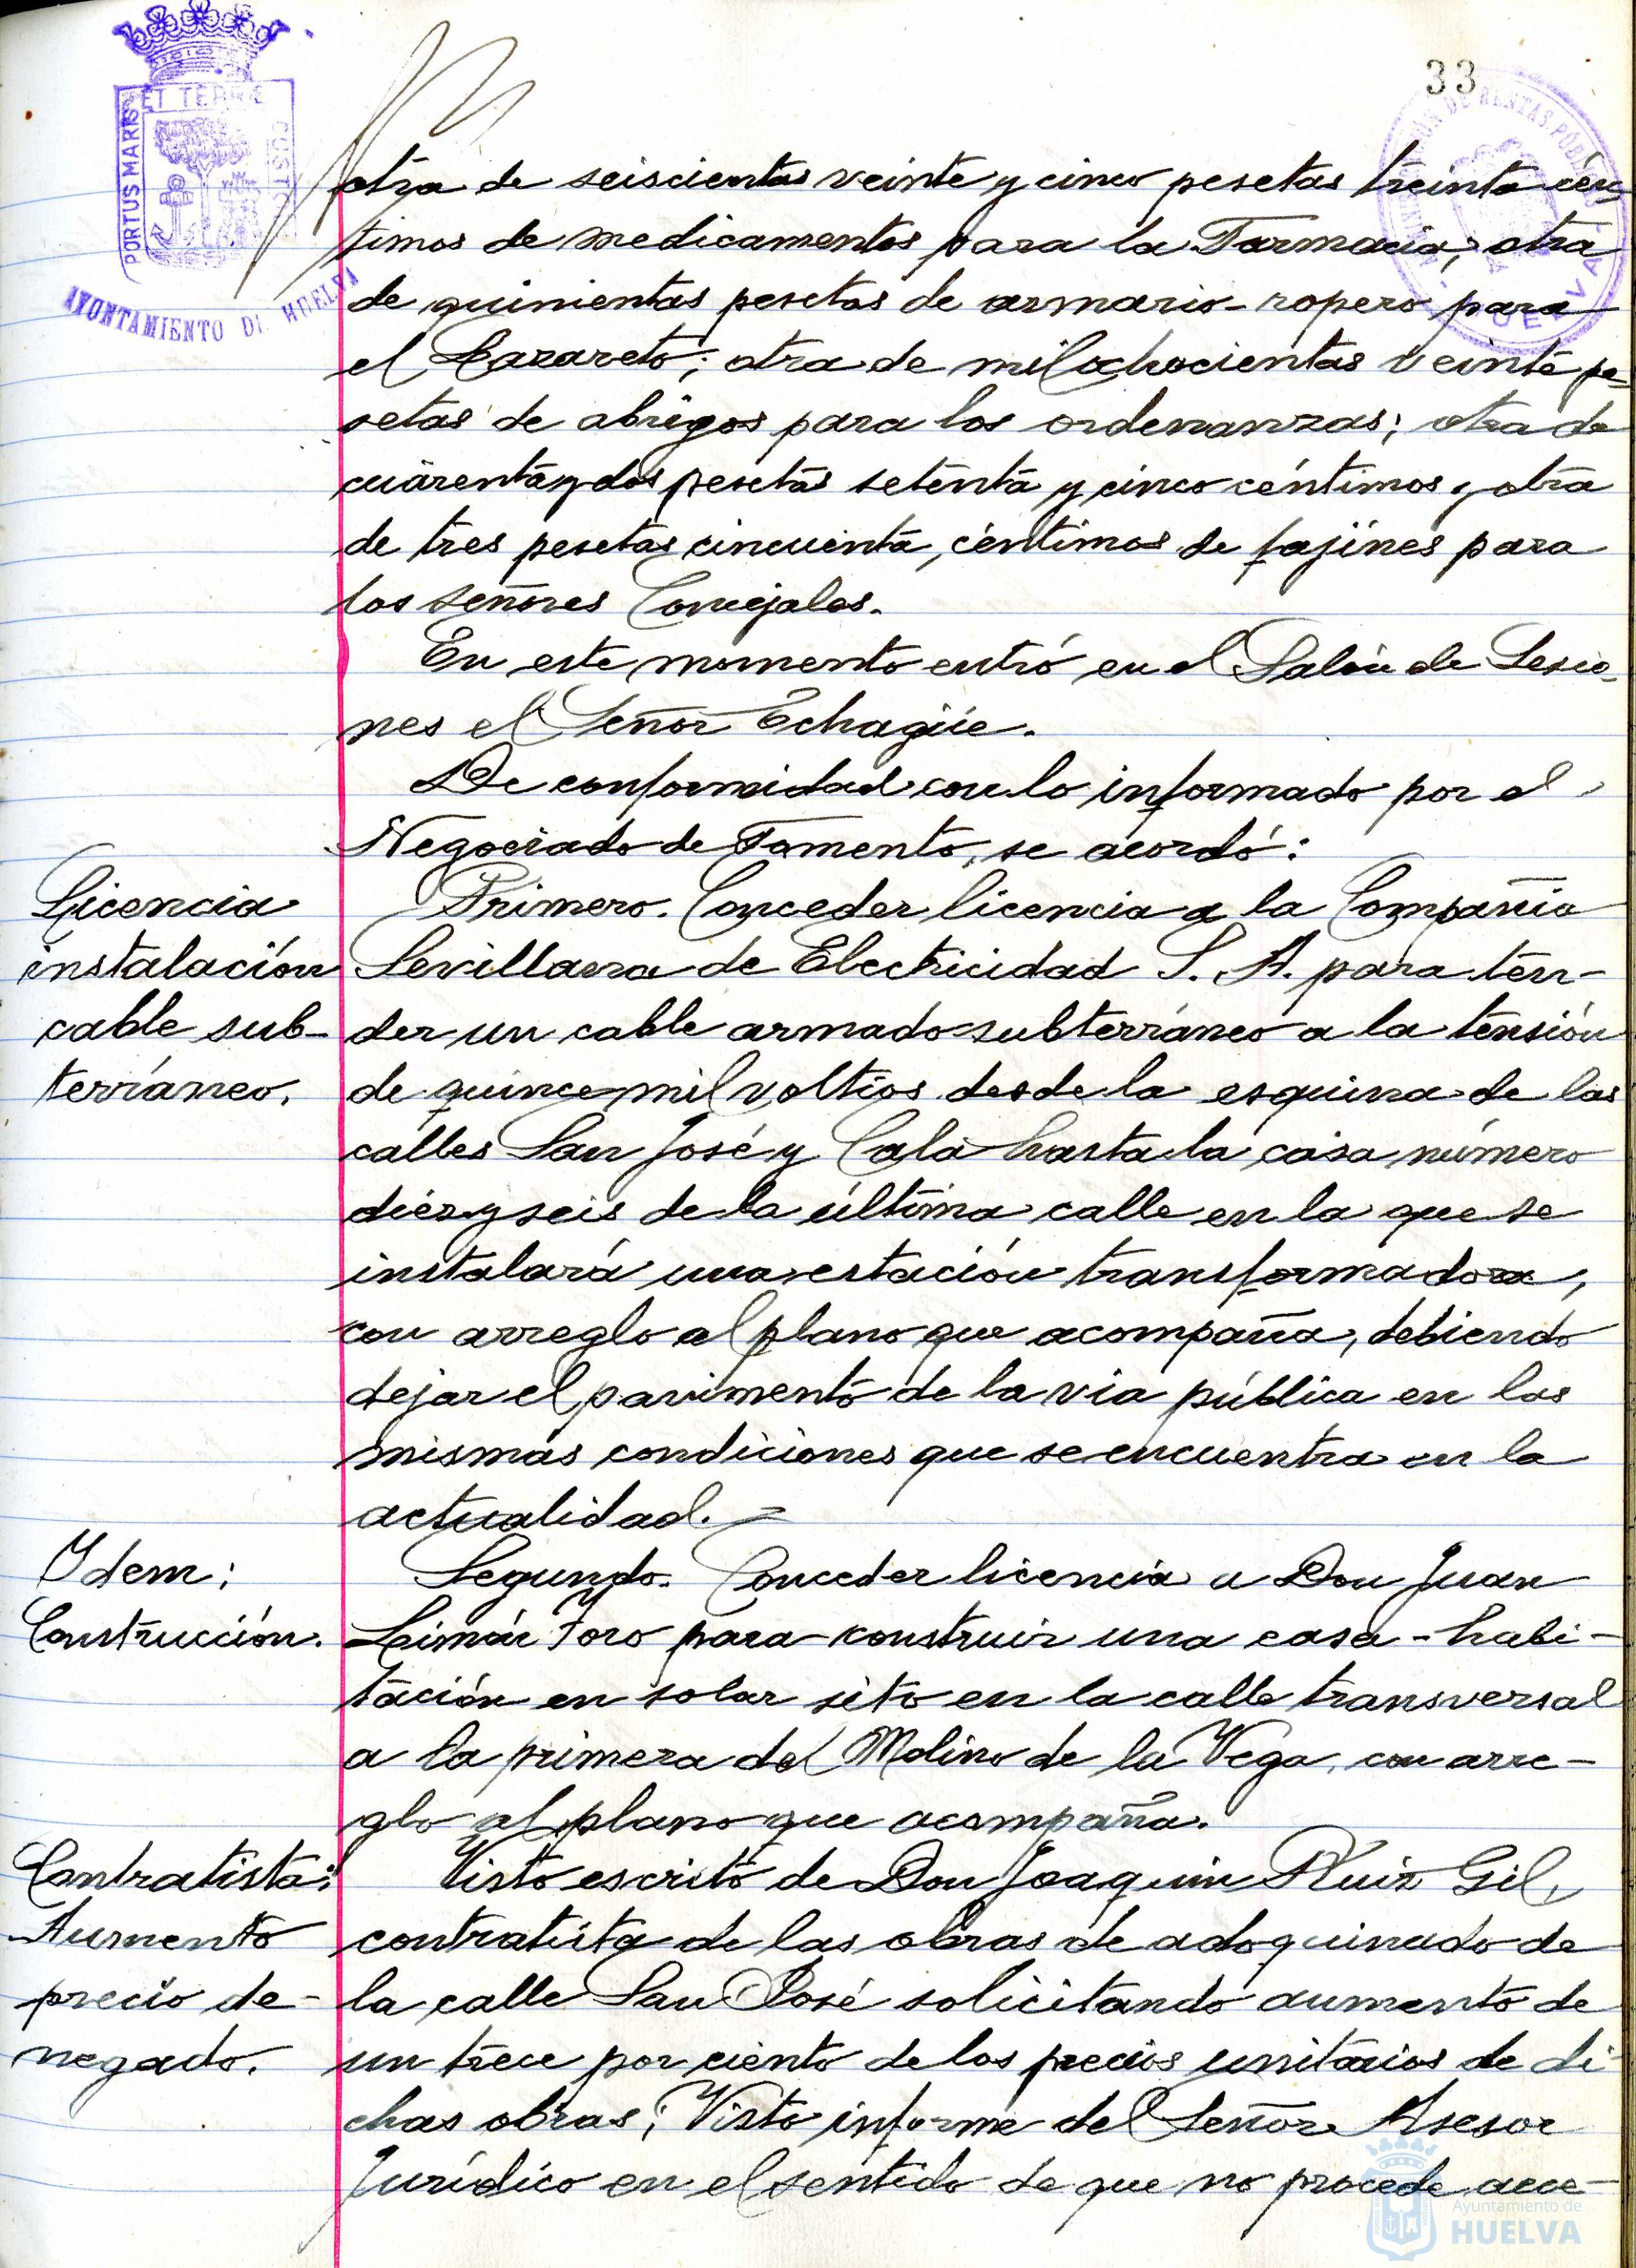 33
PORTUS MARIS ET TERRÆ CUSTO
AYUNTAMIENTO DE HUELVA
otra de seiscientas veinte y cinco pesetas treinta cén-
timos de medicamentos para la Farmacia; otra
de quinientas pesetas de armario-ropero para
el Lazareto; otra de mil ochocientas veinte pe-
setas de abrigos para los ordenanzas; otra de
cuarenta y dos pesetas setenta y cinco céntimos y otra
de tres pesetas cincuenta céntimos de fajines para
los señores Concejales.
En este momento entró en el Salón de Sesio-
nes el Señor Echagüe.
De conformidad con lo informado por el
Negociado de Fomento, se acordó:
Licencia
instalación
cable sub-
terráneo.
Primero. Conceder licencia a la Compañia
Sevillana de Electricidad S. A. para ten-
der un cable armado subterráneo a la tensión
de quince mil voltios desde la esquina de las
calles San José y Cala hasta la casa número
diez y seis de la última calle en la que se
instalará una estación transformadora,
con arreglo al plano que acompaña, debiendo
dejar el pavimento de la via pública en las
mismas condiciones que se encuentra en la
actualidad.=
Idem:
Construcción.
Segundo. Conceder licencia a Don Juan
Toro para construir una casa-habi-
tación en solar sito en la calle transversal
a la primera del Molino de la Vega, con arre-
glo al plano que acompaña.
Contratista:
Aumento
precio de-
negado.
Visto escrito de Don Joaquin Ruiz Gil,
contratista de las obras de adoquinado de
la calle San José solicitando aumento de
un trece por ciento de los precios unitarios de di-
chas obras; Visto informe del Señor Asesor
Jurídico en el sentido de que no procede acce-
Ayuntamiento de
HUELVA